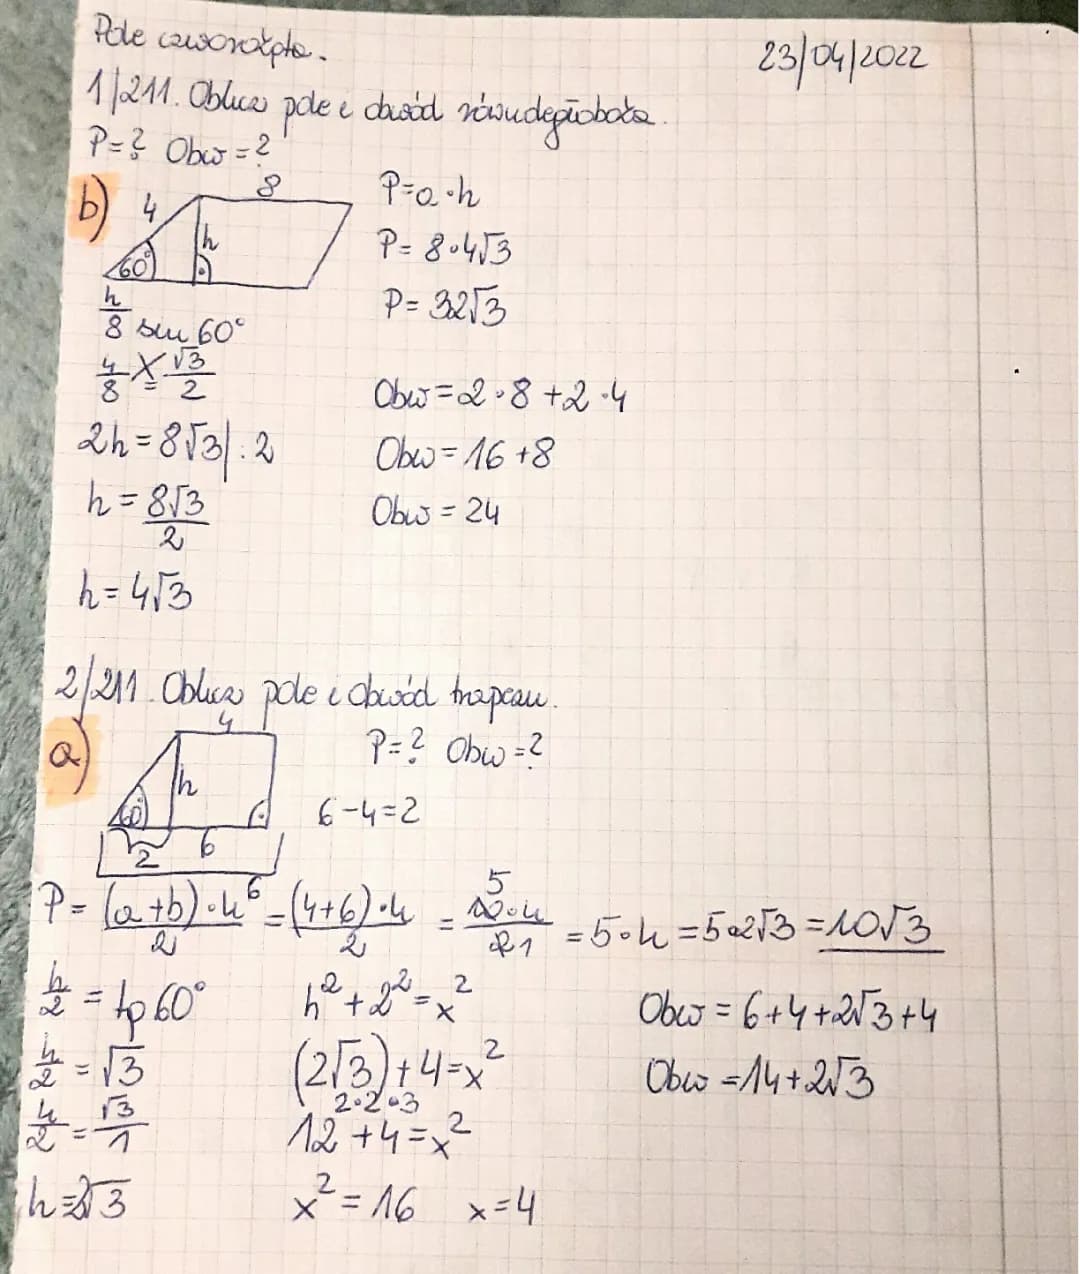 Pole czworokąta.
23/04/2022
1/211. Oblicz pole i obwód równoległoboku.
P=? Obw=?
b)
4
8
h
60°
P=a·h
P=8·4√3
P=32√3
h/8 sin 60°
h/8 = √3/2
2h=8√3|:2
h=8√3/2
h=4√3
Obw=2·8+2·4
Obw=16+8
Obw=24
2/211. Oblicz pole i obwód trapezu.
a)
4
h
60°
2
6
P=? Obw=?
6-4=2
P=(a+b)·h/2 = (4+6)·h/2 = 10·h/2 = 5·h = 5·2√3 = 10√3
6
5
1
h/2 = tg 60°
h/2 = √3
h/2 = √3/1
h=2√3
h²+2²=x²
(2√3)+4=x²
2·2·3
12+4=x²
x²=16 x=4
Obw=6+4+2√3+4
Obw=14+2√3